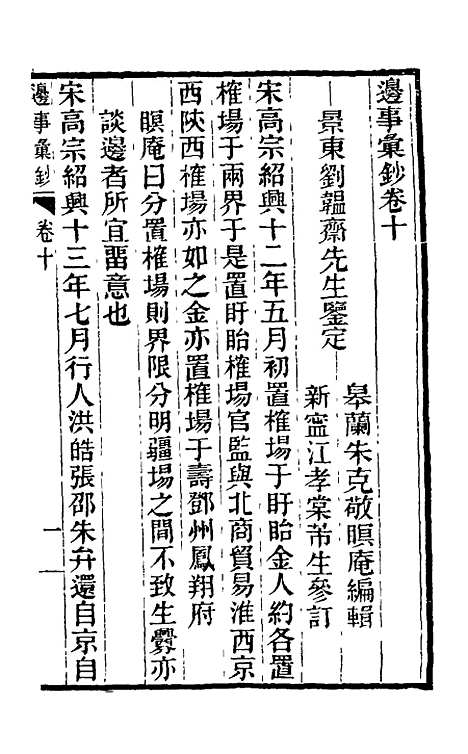 邊事彙鈔卷十
景東劉韞齋先生鑒定
皋蘭朱克敬暝庵編輯
新寍江孝棠芾生參訂
宋高宗紹興十二年五月初置榷場于盱眙金人約各置
榷場于兩界于是置盱眙榷場官監與北商貿易淮西京
西陝西榷場亦如之金亦置榷場于壽鄧州鳳翔府
暝庵曰分置榷場則界限分明疆場之間不致生釁亦
談邊者所宜畱意也
宋高宗紹興十三年七月行人洪皓張邵朱弁還自京自
邊事彙鈔
卷十
一